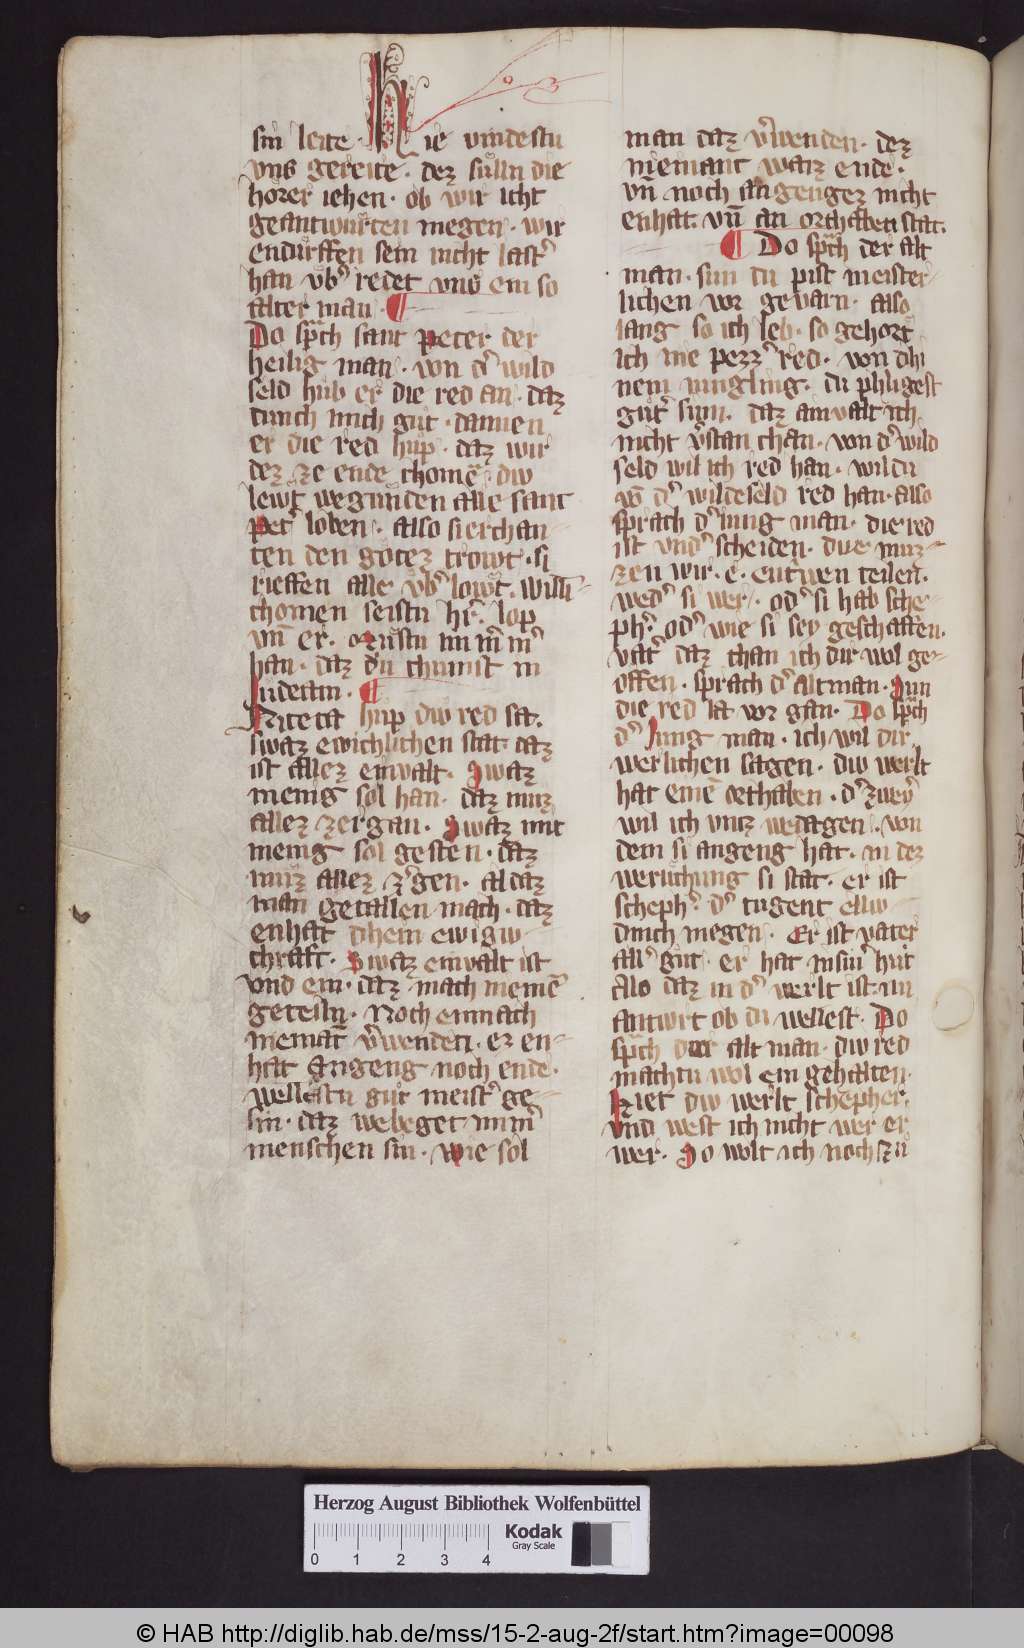 sin leite · Hie vindestu
vns gereite · dez sulln die
horer iehen · ob wir icht
geantwurten megen · wir
endurffen sein nicht last͛
han vb͛ redet vns ein so
alter man · ¶
Do sp̄ch sant peter der
heilig man · von d͛ wild
seld hub er die red an · daz
dunch mich gůt · dannen
er die red hup · daz wir
dez ze ende chomē · diw
lewt wegunden alle sant
pet͛ loben · also si erchan-
ten den gotez trowt · si
rieffen alle vb͛ lowt · willi-
chomen seistu hr͛ · lop
vnd er · můstu im͛ m͛
han · daz du chumst in
iudeam · ¶
Niteta hup diw red sa͛t ·
swaz ewichlichen stat daz
ist allez einvalt · Swaz
menig sol han · daz muz
allez zergan · Swaz mit
menig sol gesten · daz
muz allez z͛gen · al daz
man getailen mach · daz
enhat dhein ewigiw
chraft · Swaz einvalt ist
vnd ein · daz mach niemē
geteiln · Noch enmach
niemāt v͛wenden · ez en-
hat Angeng noch ende ·
wellestu gůt meist͛ ge-
sin · daz webeget minn͛
menschen sin · wie sol
man daz v͛wenden · dez
niemant waz ende ·
vn̄ noch angengez nicht
enhat · vn̄ an orthaben stat ·
¶ Do sp̄ch der alt
man · sun du pist meister-
lichen vor gevarn · also
lang so ich leb · so gehort
ich nie pezz͛ red · von dhi
nem iungling · du phligest
gut͛ sinn · daz ainvalt ich
nicht v͛stan chan · von d͛ wild
seld wil ich red han · wil du
vō d͛ wildeseld red han · Also
sprach d͛ iung man · die red
ist vnd͛ scheiden · die muz-
zen wir · e · entwen teilen ·
wed͛ si wer · od͛ si hab sche-
ph͛ · od͛ wie si sey geschaffen ·
vat͛ daz chan ich dir wol ge-
offen · sprach d͛ altman · Nun
die red la vor gan · Do sp̄ch
d͛ Iung man · ich wil dir
werlichen sagen · diw werlt
hat einē orthaben · d͛ zwey͛
wil ich vntz wedagen · von
dem si angeng hat · in dez
weruchung si stat · er ist
scheph͛ · d͛ tugent elliw
dunch megen · Er ist vater
all͛ gůt · er hat in sin͛ hůt
Alo daz in d͛ werlt ist · nu
antwrt ob du wellest · Do
sp̄ch der alt man · diw red
machtu wol ein gehalten ·
Hiet diw werlt schepher
vnd west ich nicht wer er
wer · So wolt ich noch zů
Herzog August Bibliothek Wolfenbüttel
0 1 2 3 4
Kodak
Gray Scale
© HAB http://diglib.hab.de/mss/15-2-aug-2f/start.htm?image=00098